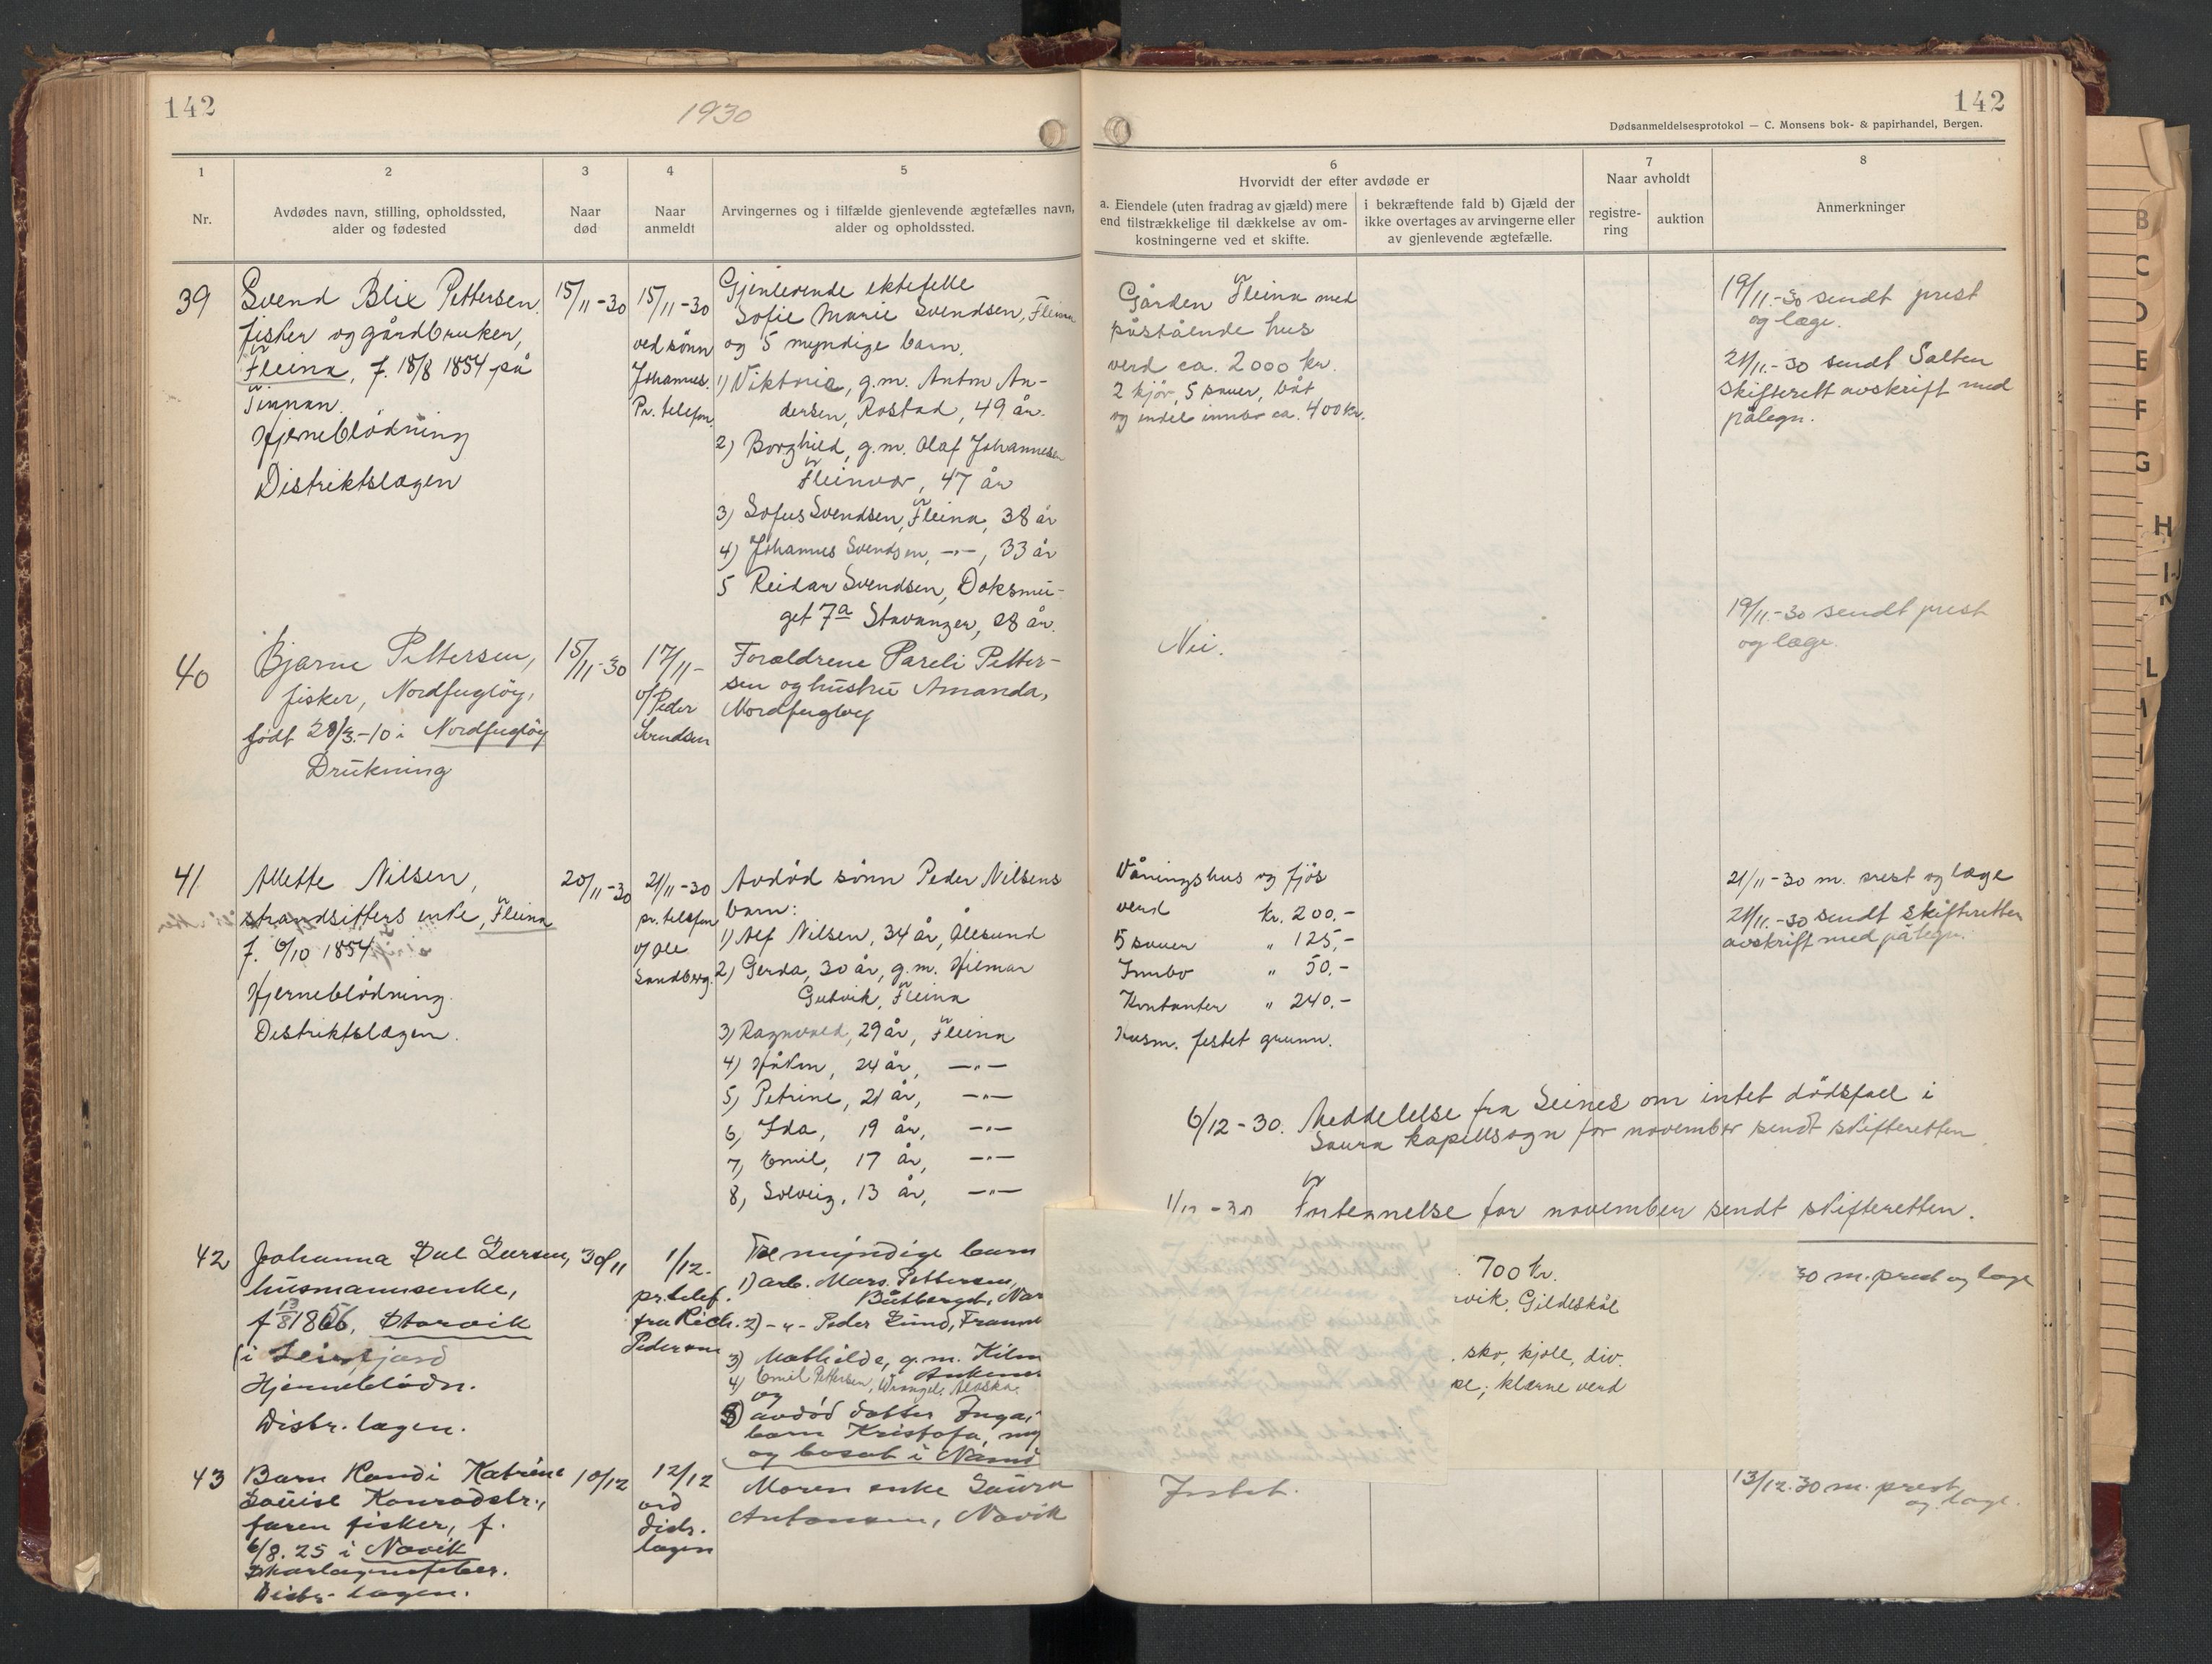 142
1930
142
Dødsanmeldelsesprotokol — C. Monsens bok- & papirhandel, Bergen.
1
Nr.
2
Avdødes navn, stilling, opholdssted,
alder og fødested
3
Naar
død
4
Naar
anmeldt
5
Arvingernes og i tilfælde gjenlevende ægtefælles navn,
alder og opholdssted.
6
Hvorvidt der efter avdøde er
a. Eiendele (uten fradrag av gjæld) mere
end tilstrækkelige til dækkelse av om-
kostningerne ved et skifte.
i bekræftende fald b) Gjæld der
ikke overtages av arvingerne eller
av gjenlevende ægtefælle.
7
Naar avholdt
registre-
ring
auktion
8
Anmerkninger
39
Svend Blix Pettersen,
fisker og gårdbruker,
Fleina, f. 18/8 1854 på
Hjerneblödning
Distriktslægen
15/11-30
15/11-30
ved sønn
Johannes.
Pr. telefon.
Gjenlevende ektefelle
Sofie Marie Svendsen, Fleina
og 5 myndige barn.
1) Viktoria, g.m. Anton An-
dersen, Rostad, 49 år.
2) Borghild, g.m. Olaf Johannesen
Fleinvær, 47 år
3) Sofus Svendsen, Fleina, 38 år
4) Johannes Svendsen, -"-, 33 år
5 Reidar Svendsen, Doksmu-
get 7a Stavanger, 28 år.
Gården Fleina med
påstående hus
verd ca. 2000 kr.
2 kjør, 5 sauer, båt
og endel innbo ca. 400 kr.
19/11.-30 sendt prest
og læge.
21/11.-30 sendt Salten
skifterett avskrift med
påtegn.
40
Bjarne Pettersen,
fisker, Nordfugløy,
født 28/3.-10 i Nordfugløy
Drukning
15/11-30
17/11-
v/Peder
Svendsen
Forældrene Pareli Petter-
sen og hustru Amanda,
Nordfugløy
Nei.
19/11.-30 sendt prest
og læge.
41
Allette Nilsen,
strandsitters enke, Fleina
f. 6/10 1854
Hjerneblödning.
Distriktslægen.
20/11-30
21/11-30
pr. telefon
v/Ole
Sandberg.
Avdöd sönn Peder Nilsens
barn:
1) Alf Nilsen, 34 år, Ålesund
2) Gerda, 30 år, g.m. Hilmar
Gutvik, Fleina
3) Ragnvald, 29 år, Fleina
4) Håkon, 24 år, -"-
5) Petrine, 21 år, -"-
6, Ida, 19 år, -"-
7, Emil, 17 år, -"-
8, Solveig, 13 år, -"-
Våningshus og fjös
verd kr. 200.-
5 sauer " 125,-
Innbo " 50.-
Kontanter " 240.-
Husm. festet grunn.
21/11-30 m. prest og læge
21/11.-30 sendt skifteretten
avskrift med påtegn.
6/12-30. Meddelelse fra Seines om intet dödsfall i
Saura kapellsogn for november sendt skifteretten.
1/12-30 Fortegnelse for november sendt skifteretten.
42
Johanna Dal Larsen,
husmannsenke,
f 13/8 1856, Storvik
i Leirfjord
Hjerneblödn.
Distr. lægen.
30/11
1/12.
pr. telef.
fra Rich.
Pedersen
Tre myndige barn
1) arb. Mars. Pettersen,
2) -"- Peder Lund,
3) Mathilde, g.m.
4) Emil Pettersen, Wrangel, Alaska.
og
5) avdöd datter
barn Kristofa,
og bosat i
700 kr.
vik, Gildeskål
. sko, kjole, div.
klærne verd
30 m. prest og læge
43
Barn Randi Katrine
Louise Konradsdtr.,
faren fisker, f.
6/8.25 i Novik
Skarlagensfeber.
Distr. lægen.
10/12
12/12
ved
distr.
lægen
Moren enke Laura
Antonsen, Novik
Intet.
13/12.30 m. prest
og læge.
B
C
D
E
F
G
H
I-J
K
L